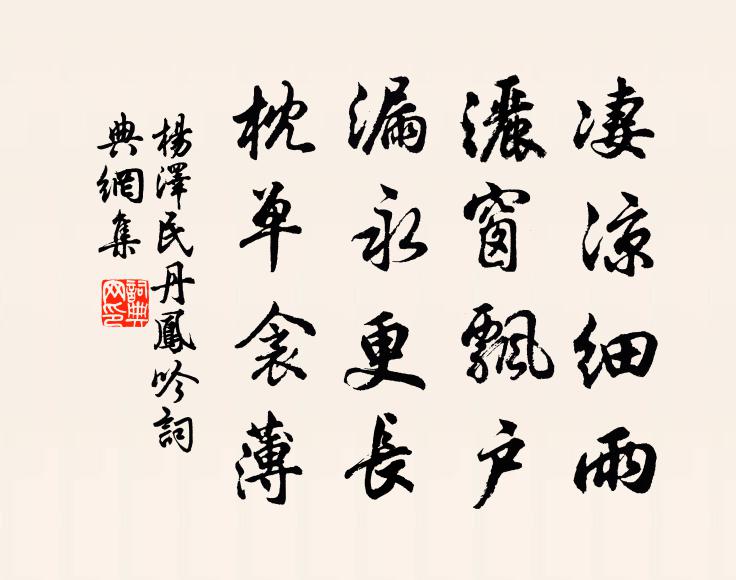 凄涼細雨
灑窗飄户
漏永更長
枕单衾薄
楊澤民丹鳳吟詞
典網集
詞典网印